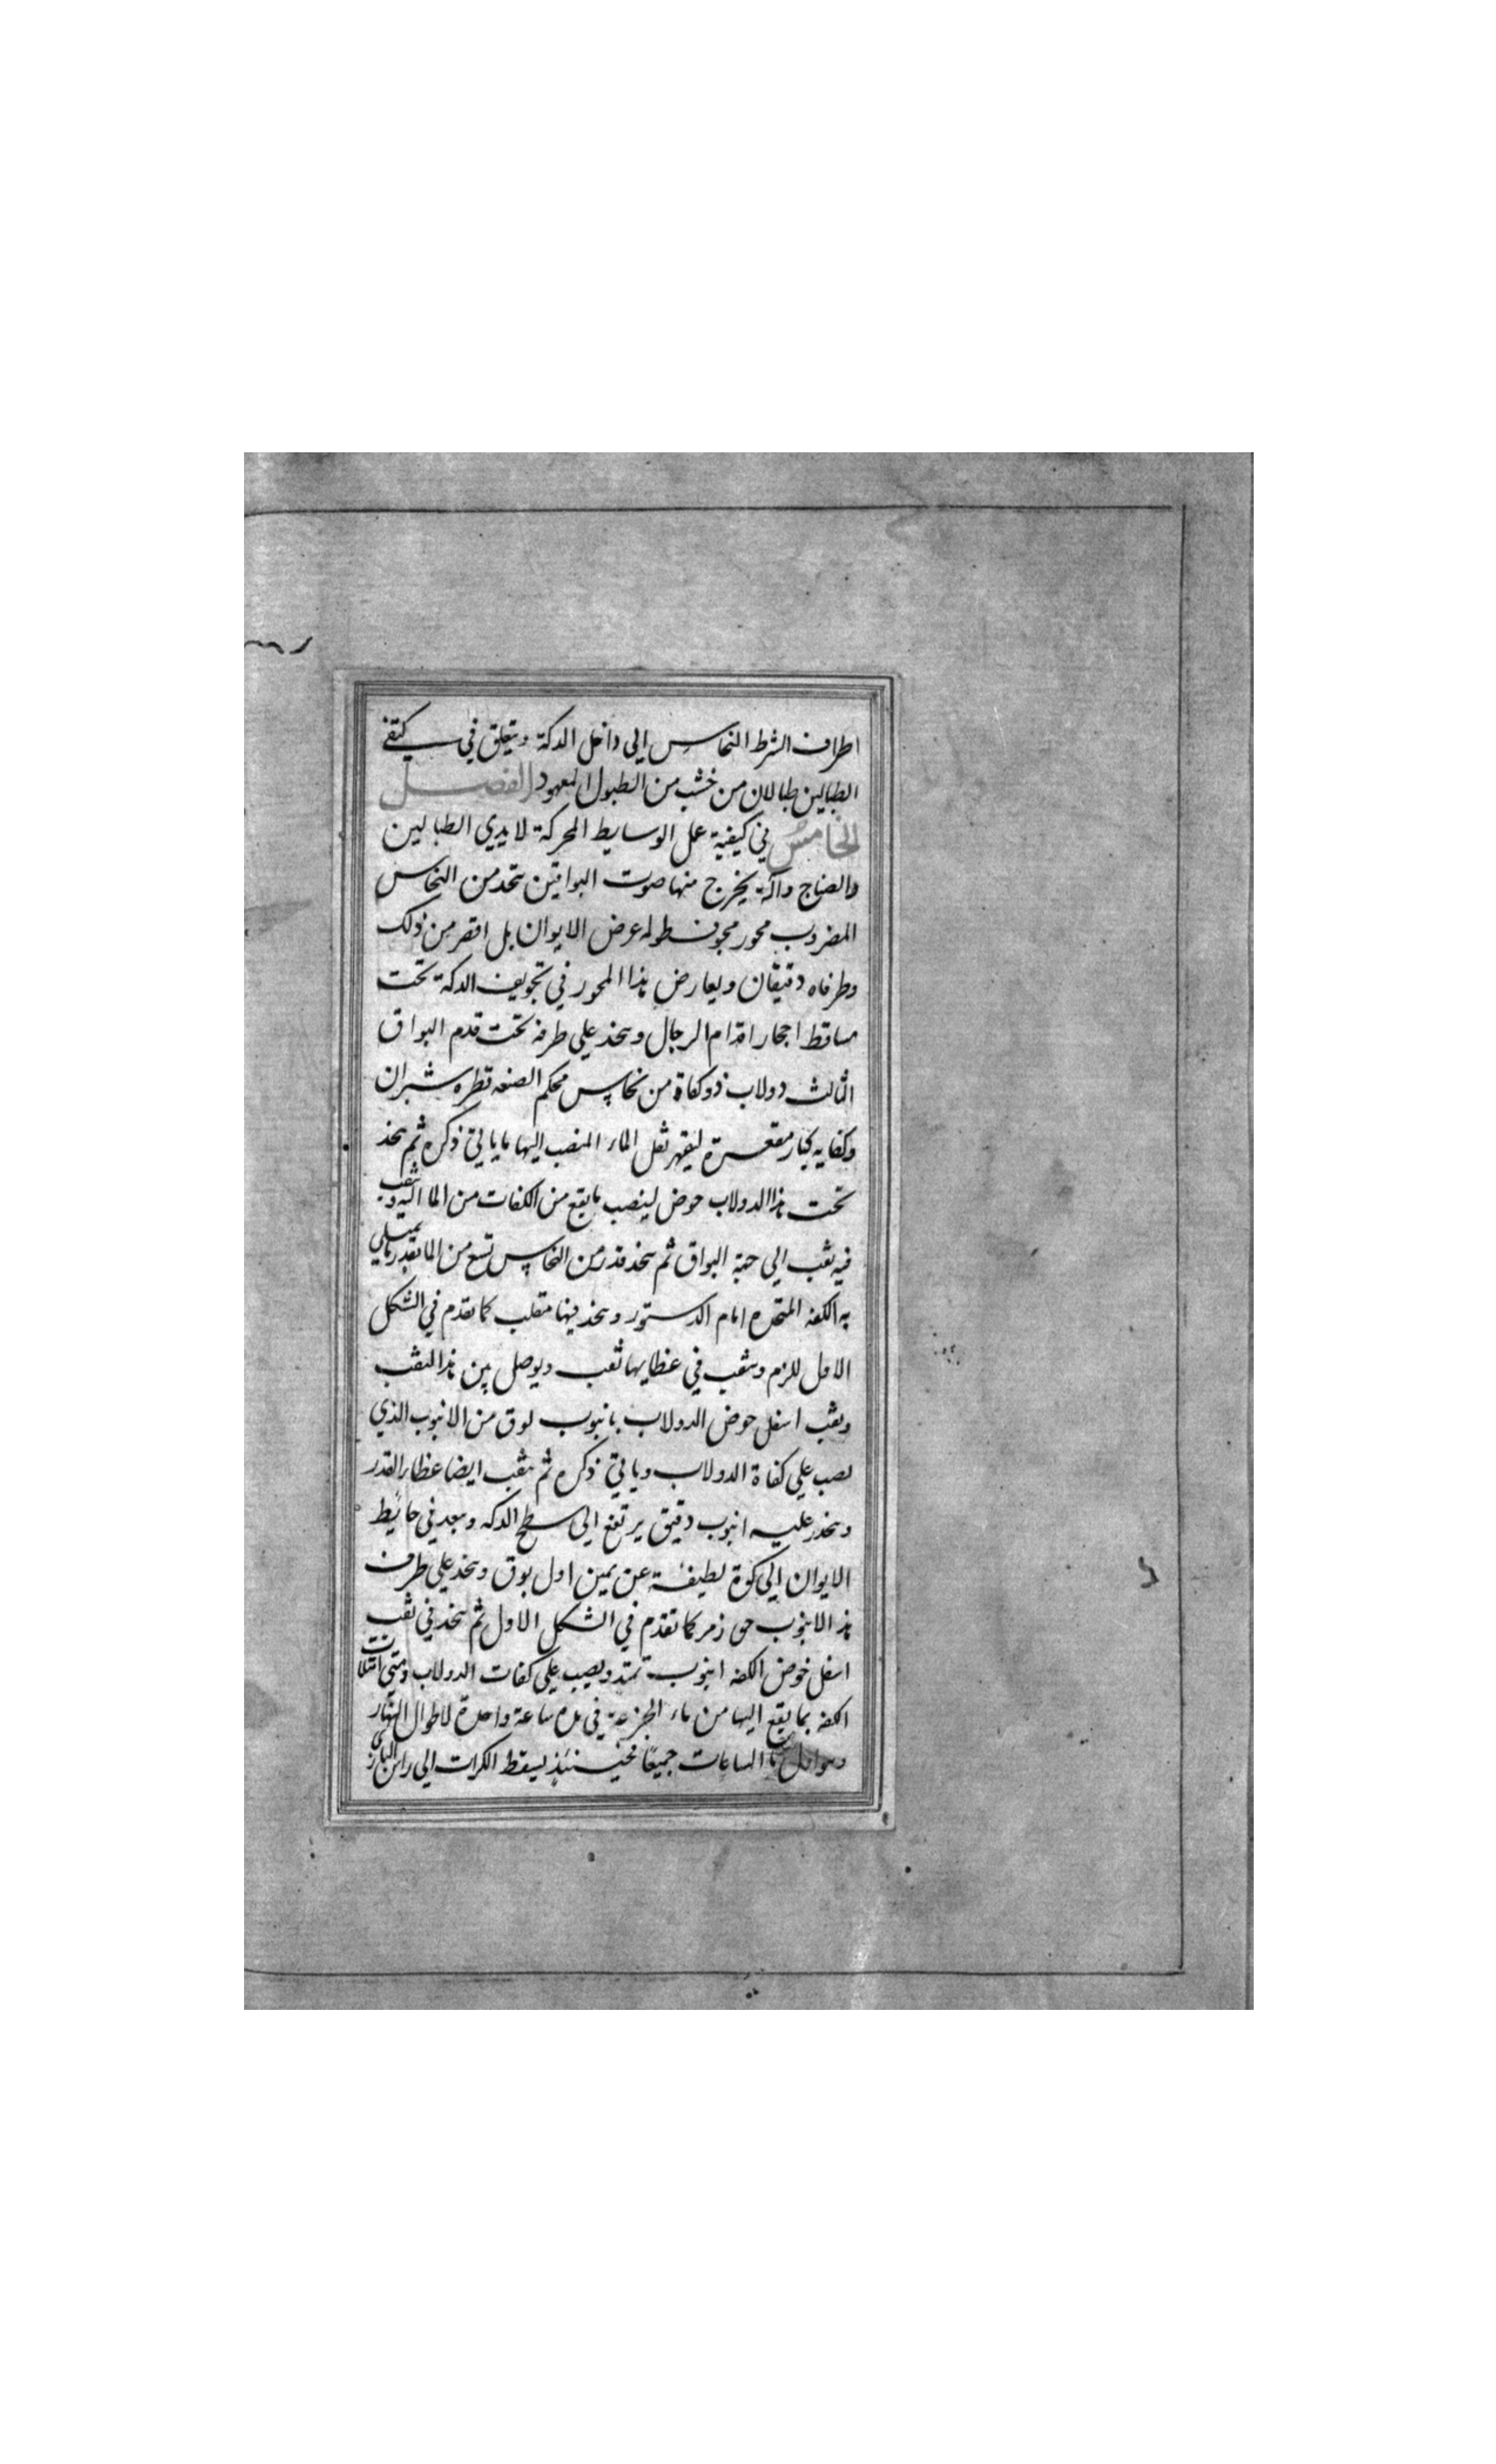 اطراف الشرط النحاس الى داخل الدكة ويتعلق في كتفى
الطبالين طبالان من خشب من الطبول المعهود الفصل
الخامس في كيفية عمل الوسايط المحركة لايدي الطبالين
والصناج وآلة يخرج منها صوت البواقين يتخذ من النحاس
المضروب محور مجوف طوله عرض الايوان بل اقصر من ذلك
وطرفاه دقيقان ويعارض هذا المحور في تجويف الدكة تحت
مساقط احجار اقدام الرجال ويتخذ على طرفه تحت قدم البواق
الثالث دولاب ذو كفاة من نحاس محكم الصنعه قطره شبران
وكفايه كبار مقعرة ليقهر ثقل الماء المنصب اليها ما ياتي ذكره ثم يتخذ
تحت هذا الدولاب حوض لينصب ما يقع من الكفات من الما اليه ويثقب
فيه ثقب الي جهة البواق ثم يتخذ قدر من النحاس تسع من الما بقدر ما يمتلي
به الكفه المتخذه امام الدستور ويتخذ فيها مقلب كما تقدم في الشكل
الاول للزمر ويثقب في غطايها ثقب ويوصل بين هذا النقب
وثقب اسفل حوض الدولاب بانبوب لوق من الانبوب الذي
يصب على كفاة الدولاب وياتي ذكره ثم يثقب ايضا غطاء القدر
ويتخذ عليه انبوب دقيق يرتفع الى سطح الدكه ويبعد في حايط
الايوان الى كوة لطيفة عن يمين اول بوق ويتخذ على طرف
هذا الانبوب حق زمر كما تقدم في الشكل الاول ثم يتخذ في ثقب
اسفل حوض الكفه انبوب تمتد ويصب على كفات الدولاب ومتى امتلات
الكفه بما يقع اليها من ماء الجزعة في مدة ساعة واحدة لاطوال النهار
وهو اطول الساعات جميعًا فحينئذ يسقط الكرات الى راس البازي